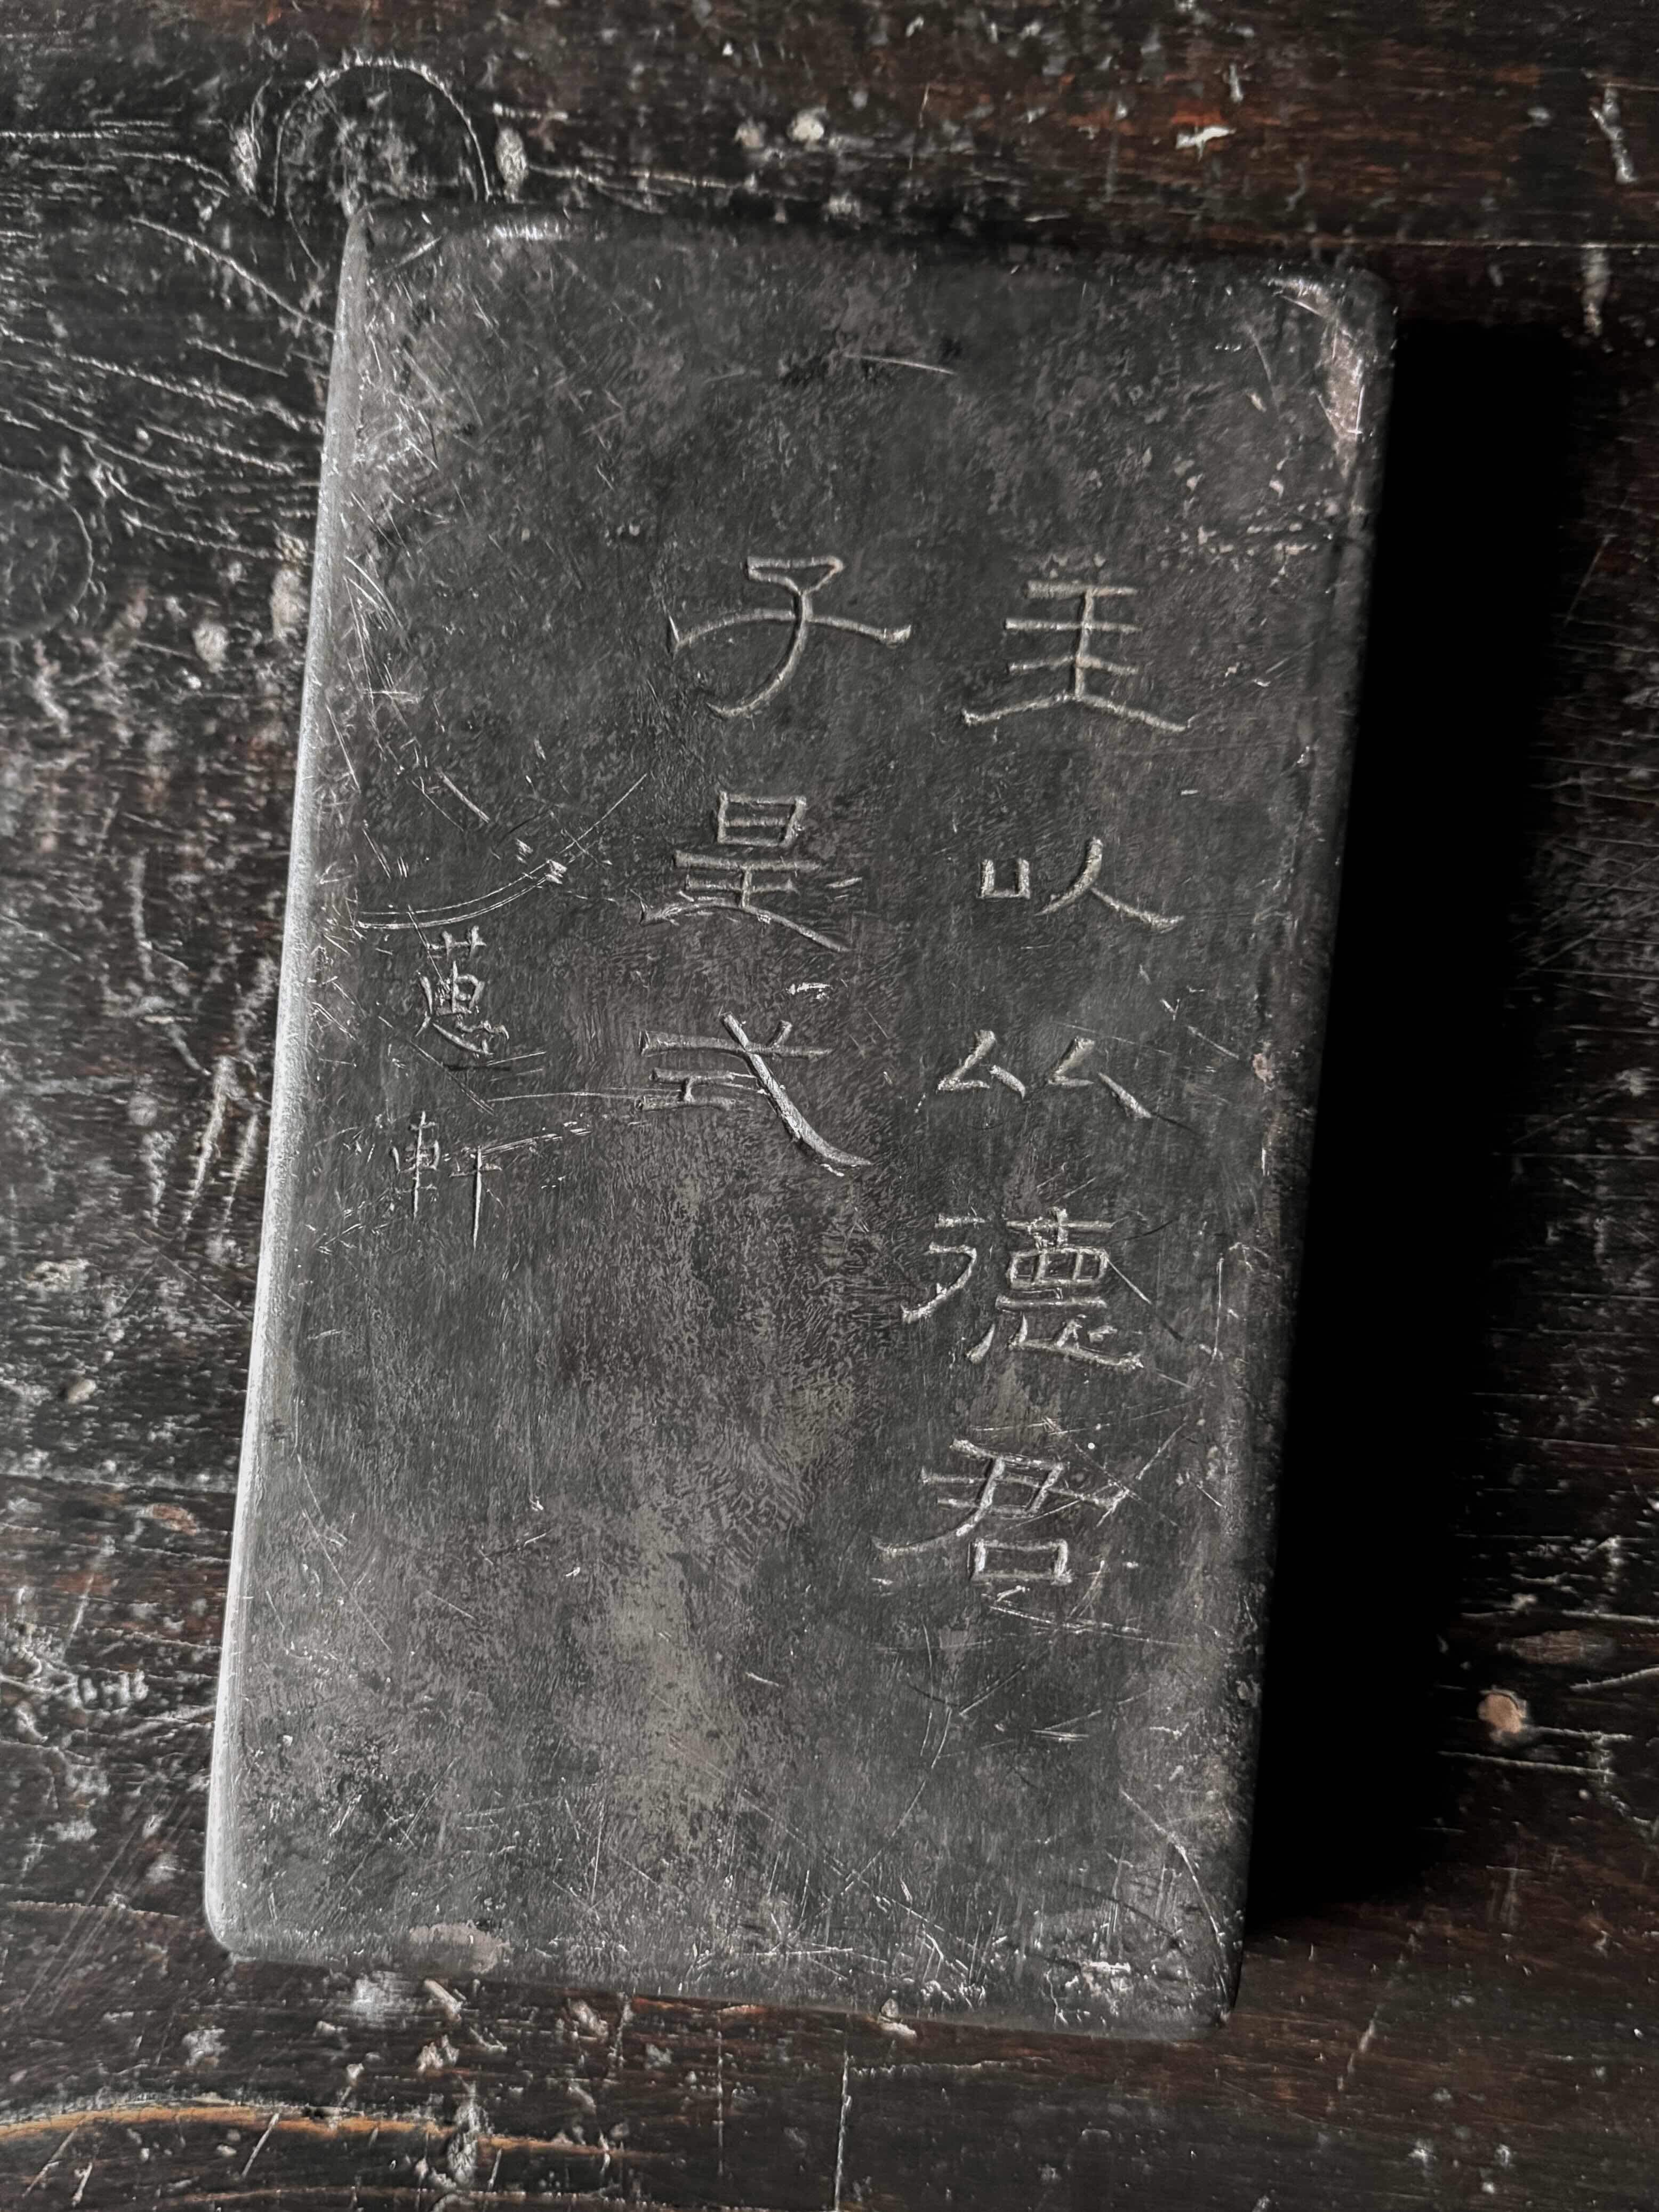 圭以比德君
子是式
蕙軒